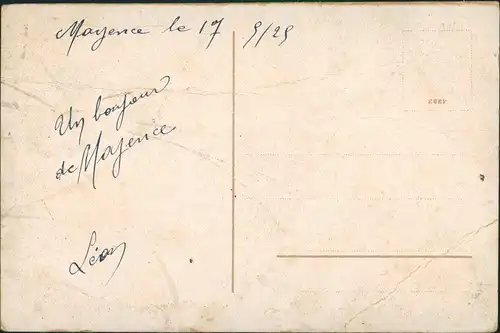 Mayence le 17 9/25
Un bonjour
de Mayence
Léon